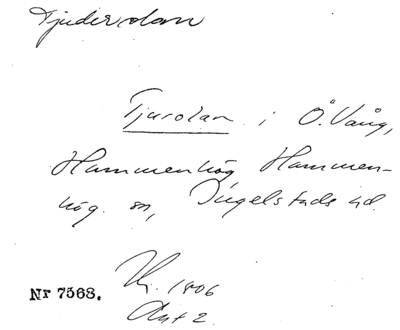 Tjuderolan
Tjurolan i Ö. Vång,
Hammenhög Hammen-
hög. sn, Ingelstads hd.
1806
Nr 7568.
Akt 2